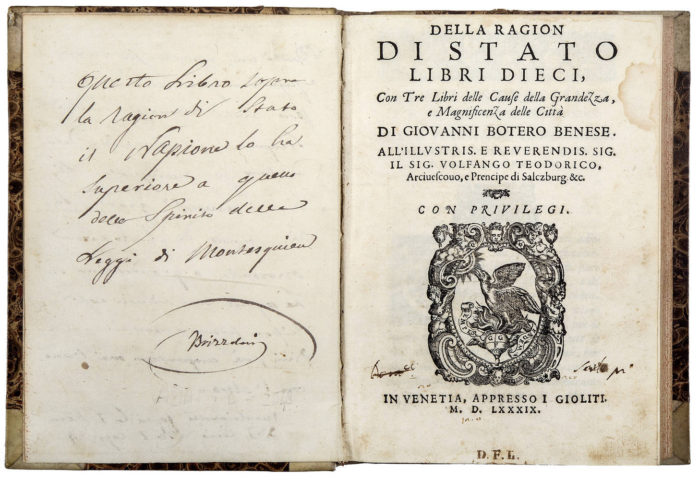 Questo Libro sopra
la ragion di Stato
il Napione lo ha
superiore a quello
dello Spirito delle
Leggi di Montesquieu
DELLA RAGION
DI STATO
LIBRI DIECI,
Con Tre Libri delle Cause della Grandezza,
e Magnificenza delle Città
DI GIOVANNI BOTERO BENESE.
ALL'ILLVSTRIS. E REVERENDIS. SIG.
IL SIG. VOLFANGO TEODORICO,
Arciuescouo, e Prencipe di Salczburg &c.
CON PRIVILEGI.
IN VENETIA, APPRESSO I GIOLITI.
M. D. LXXXIX.
D. F. L.